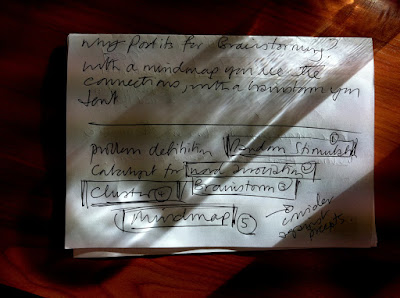 why Postits for Brainstorming?
with a mindmap you see the
connections, with a brainstorm you
dont
problem definition Random Stimulus ①
Catalyst for word association ②
Cluster ④ Brainstorm ③
Mindmap ⑤
consider